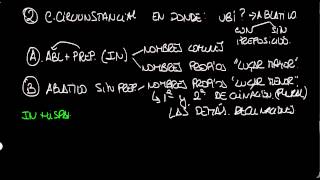 ② C.CIRCUNSTANCIAL EN DONDE: UBI? → ABLATIVO
CON SIN
PREPOSICIÓ.
Ⓐ. ABL + PREP. (IN) NOMBRES COMUNES
NOMBRES PROPIOS "LUGAR MAYOR".
Ⓑ ABLATIVO SIN PREP NOMBRES PROPIOS "LUGAR MENOR".
↳ 1ª Y 2ª DECLINACIÓN (PLURAL)
LAS DEMÁS DECLINACIONES
IN HISPA